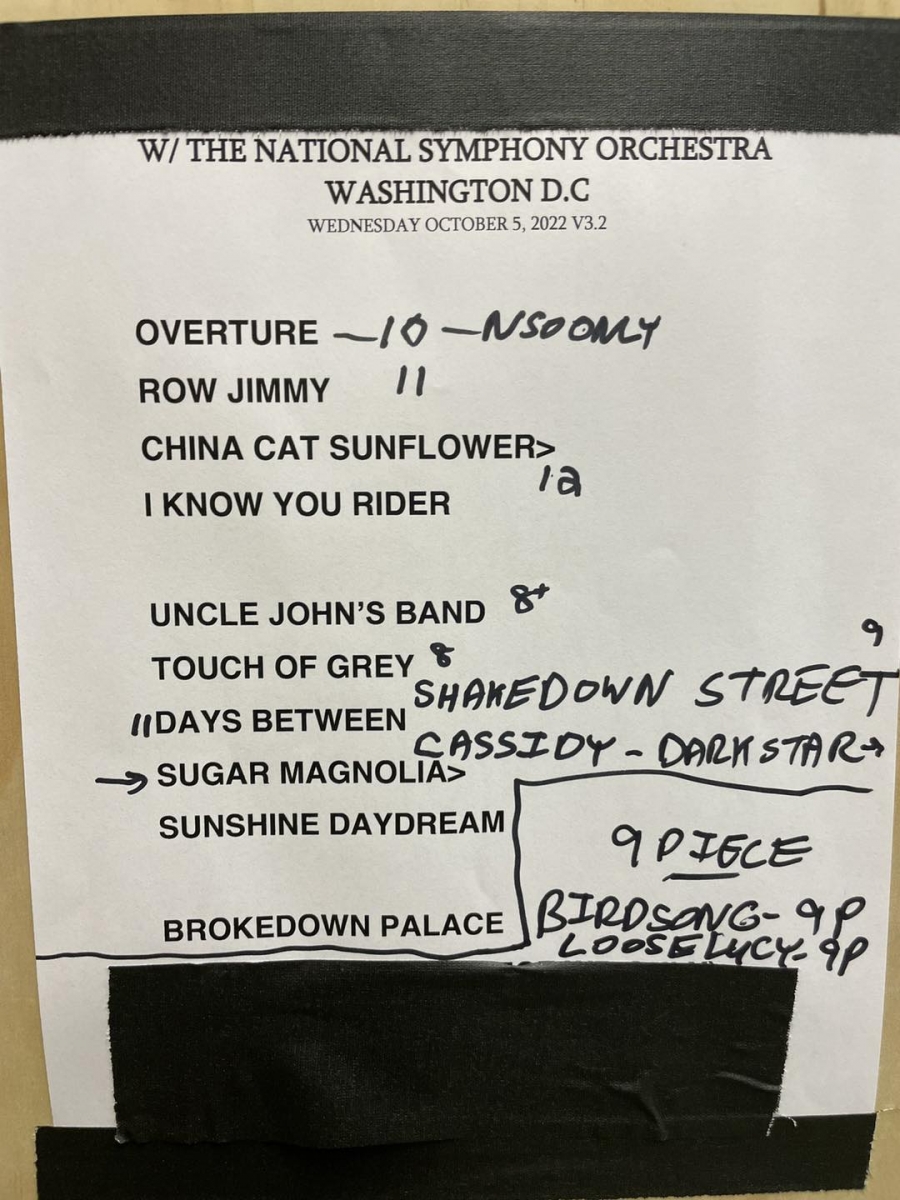 W/ THE NATIONAL SYMPHONY ORCHESTRA
WASHINGTON D.C
WEDNESDAY OCTOBER 5, 2022 V3.2
OVERTURE —10 — NSO ONLY
ROW JIMMY 11
CHINA CAT SUNFLOWER>
12
I KNOW YOU RIDER
UNCLE JOHN'S BAND 8+
9
TOUCH OF GREY 8
SHAKEDOWN STREET
11 DAYS BETWEEN
CASSIDY - DARKSTAR→
→ SUGAR MAGNOLIA>
SUNSHINE DAYDREAM
9 PIECE
BROKEDOWN PALACE
BIRDSONG - 9P
LOOSE LUCY - 9P